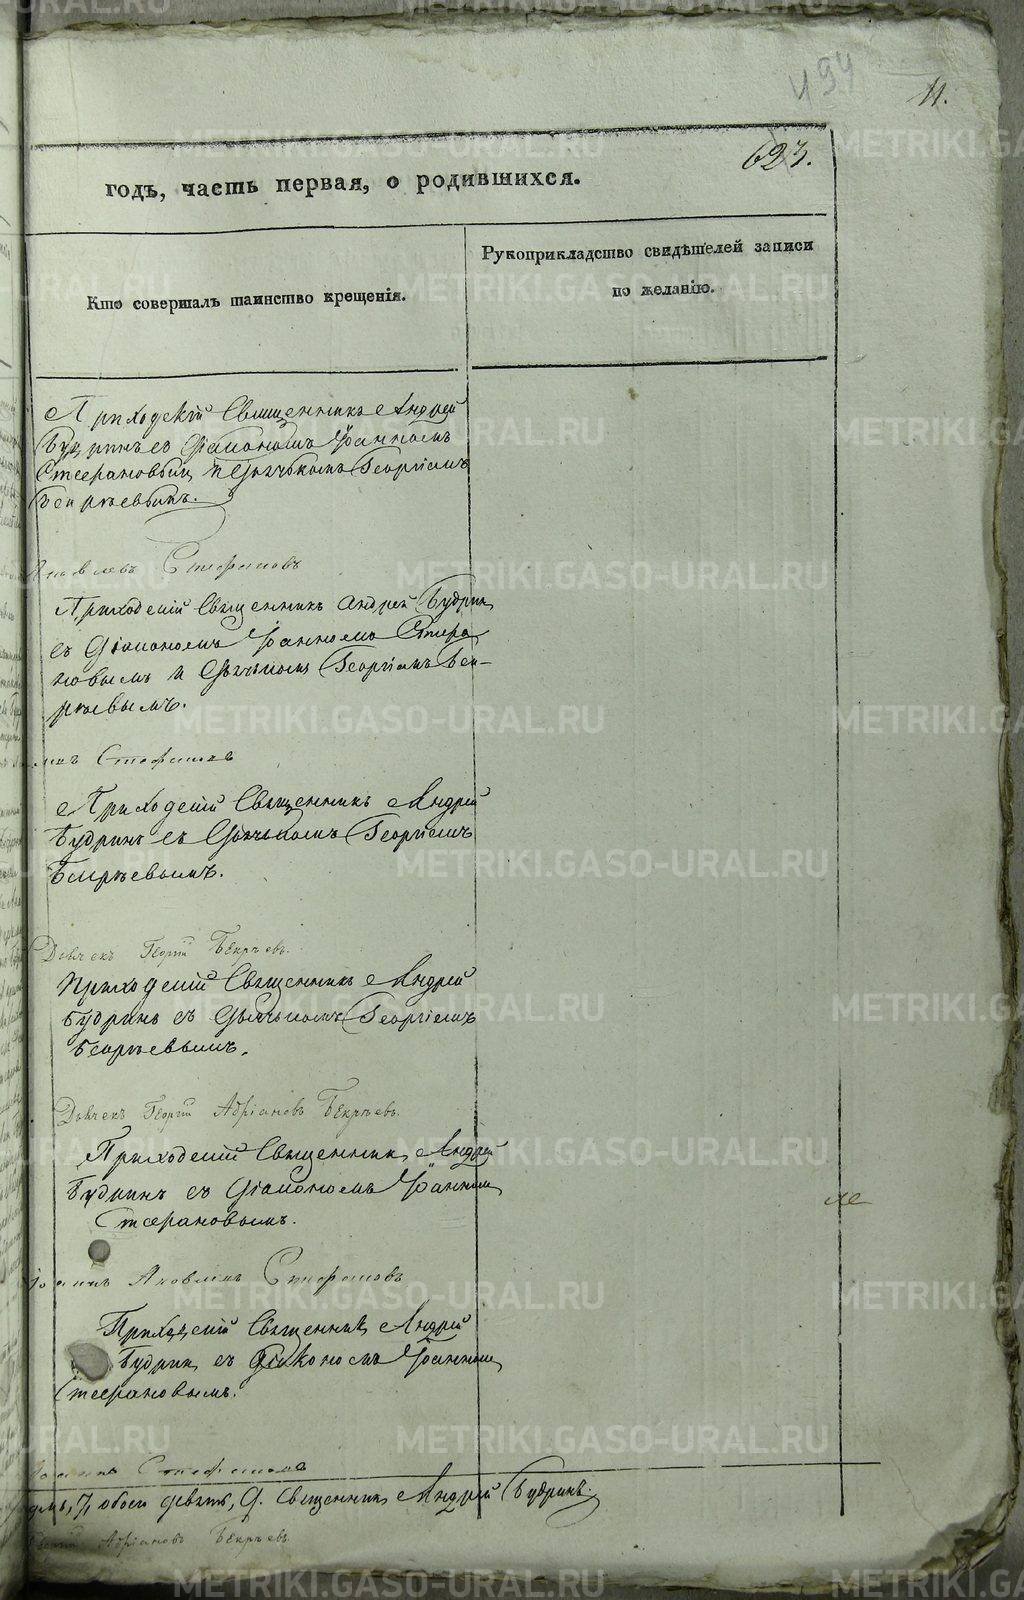 494
11.
623.
годъ, часть первая, о родившихся.
Кто совершалъ таинство крещенія.
Рукоприкладство свидѣтелей записи
по желанію.
Приходскій Священникъ Андрей
Будринъ съ Діакономъ Іоанномъ
Стефановым и Дьячькомъ Георгіемъ
Бекрѣевымъ.
Яковлевъ Стефановъ
Приходскій Священникъ Андрей Будрин
съ Діакономъ Іоанномъ Стефа
новымъ и Дьячькомъ Георгіемъ Бек-
рѣевымъ.
Стефановъ
Приходскій Священникъ Андрей
Будринъ съ Дьячькомъ Георгіемъ
Бекрѣевымъ.
Дьячекъ Георгій Бекрѣевъ.
Приходскій Священникъ Андрей
Будринъ съ Дьячькомъ Георгіемъ
Бекрѣевымъ.
Дьячекъ Георгій Адріановъ Бекрѣевъ.
Приходскій Священник Андрей
Будринъ съ Діакономъ Іоанном
Стефановымъ.
Іоаннъ Яковлевъ Стефановъ
Приходскій Священникъ Андрей
Будрин съ Діакономъ Іоанном
Стефановымъ.
Іоаннъ Стефановъ
7, обоего девять, 9. Священник Андрей Будринъ.
Георгій Адріановъ Бекрѣевъ
METRIKI.GASO-URAL.RU